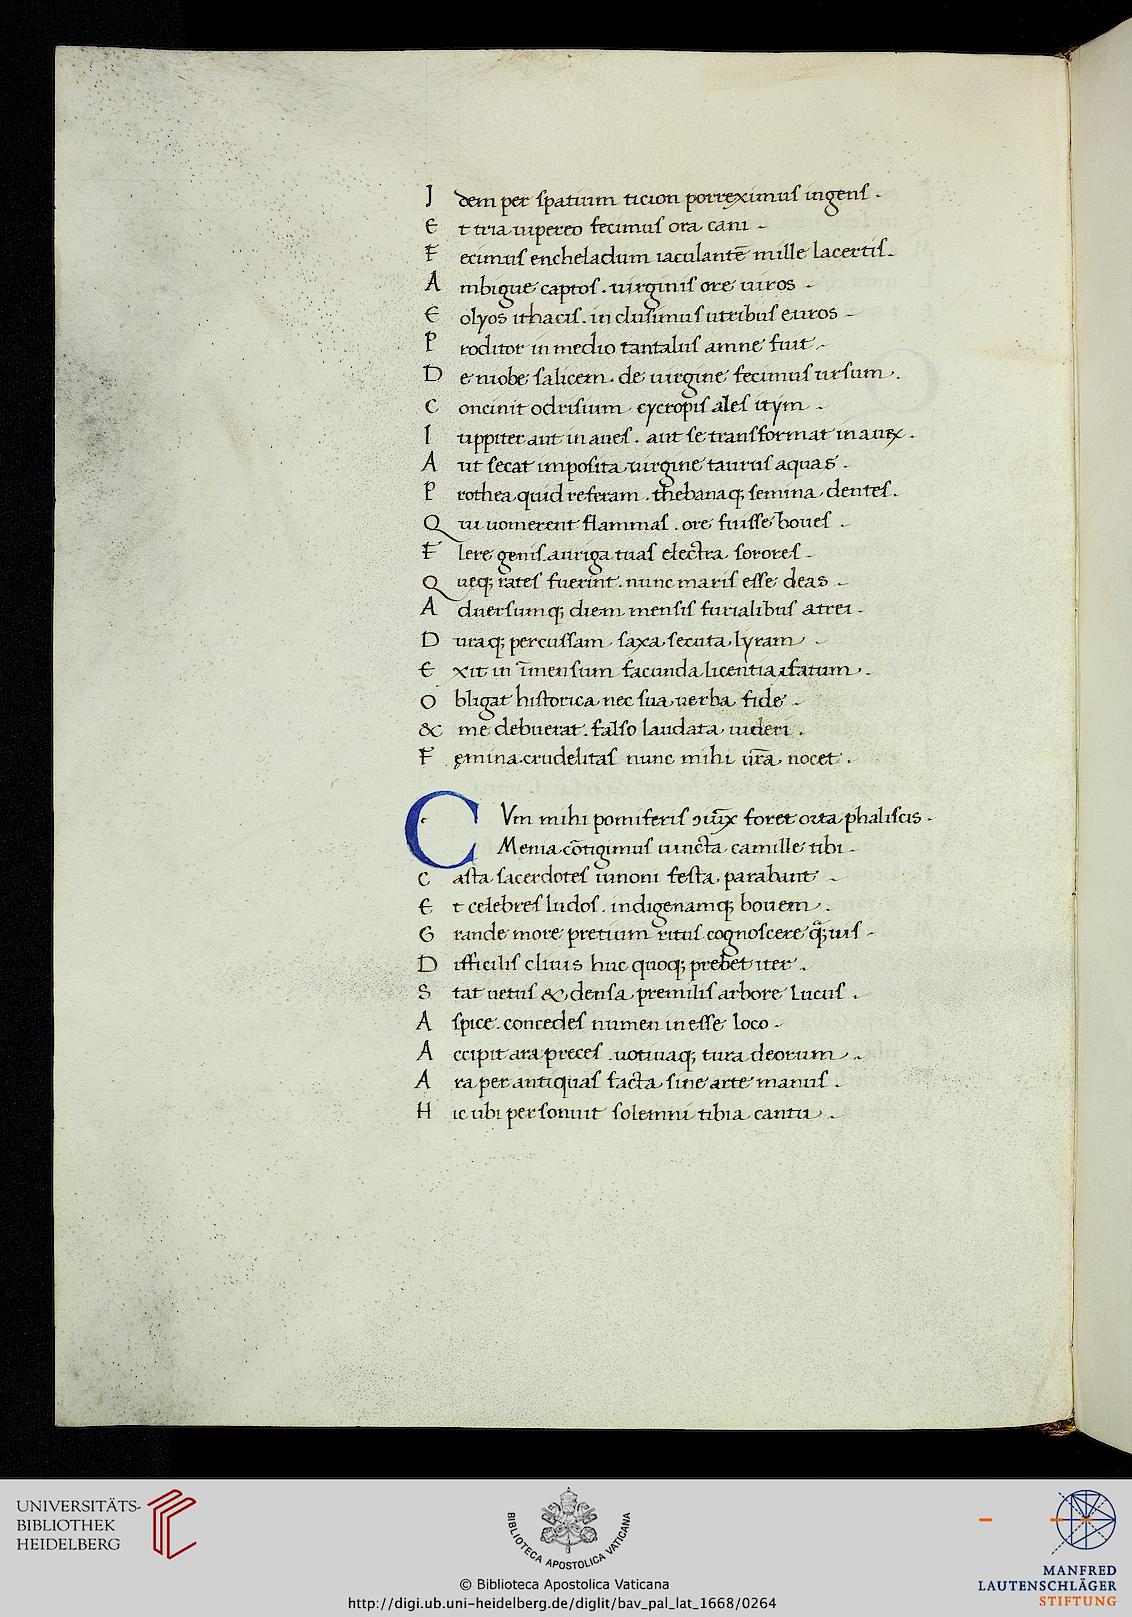 I dem per spatium ticion porreximus ingens .
E t tria uipereo fecimus ora cani .
F ecimus encheladum iaculantē mille lacertis .
A mbigue captos . uirginis ore uiros .
E olyos ithacis . inclusimus utribus euros
P roditor in medio tantalus amne fuit .
D e niobe salicem . de uirgine fecimus ursum .
C oncinit odrisium cycropis ales itym .
I uppiter aut in aues . aut se transformat in
A ut secat imposita uirgine taurus aquas .
P rothea quid referam . thebanaq; semina dentes .
Q ui uomerent flammas . ore fuisse boues .
F lere genis auriga tuas electra sorores .
Q ueq; rates fuerint . nunc maris esse deas .
A duersumq; diem mensis furialibus atrei .
D uraq; percussam saxa secuta lyram .
E xit in īmensum facunda licentia .
O bligat historica nec sua uerba fide .
& me debuerat . falso laudata uideri .
F ęmina . crudelitas nunc mihi ur̄a nocet .
C Vm mihi pomiferis foret orta phaliscis .
Menia cōtigimus uincta camille tibi .
C asta sacerdotes iunoni festa parabant .
E t celebres ludos . indigenamq; bouem .
G rande more pretium ritus cognoscere .
D ifficilis cliuis huc quoq; prebet iter .
S tat uetus & densa premilis arbore lucus .
A spice . concedes numen inesse loco .
A ccipit ara preces . uotiuaq; tura deorum .
A ra per antiquas facta sine arte manus .
H ic ubi personuit solemni tibia cantu .
UNIVERSITÄTS-
BIBLIOTHEK
HEIDELBERG
BIBLIOTECA APOSTOLICA VATICANA
© Biblioteca Apostolica Vaticana
http://digi.ub.uni-heidelberg.de/diglit/bav_pal_lat_1668/0264
MANFRED
LAUTENSCHLÄGER
STIFTUNG